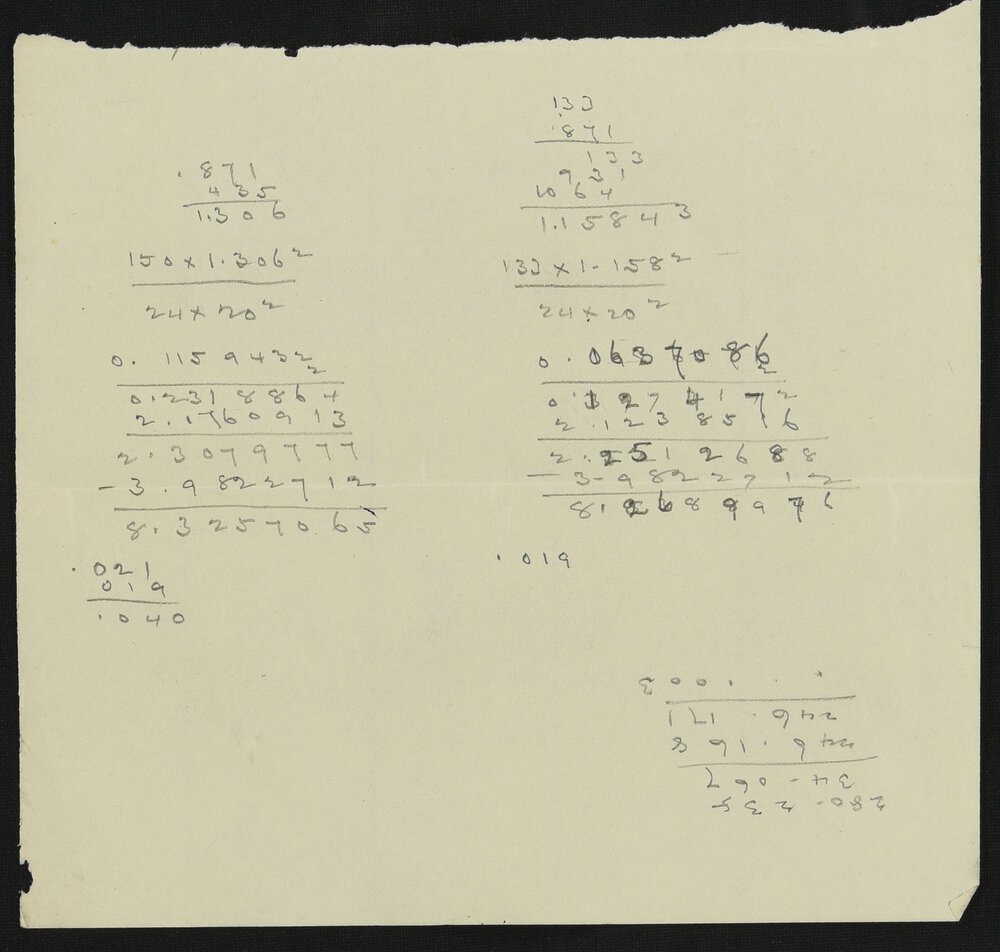 .871
435
1.306
150 × 1.306²
24 × 20²
0.1159432
2
0.2318864
2.1760913
2.3079777
- 3.9822712
8.3257065
.021
019
.040
133
.871
133
931
1064
1.15843
133 × 1.158²
24 × 20²
0.0637086
2
0.1274172
2.1238516
2.2512688
- 3.9822712
8.2689976
.019
280.235
34.067
246.168
246.171
.003